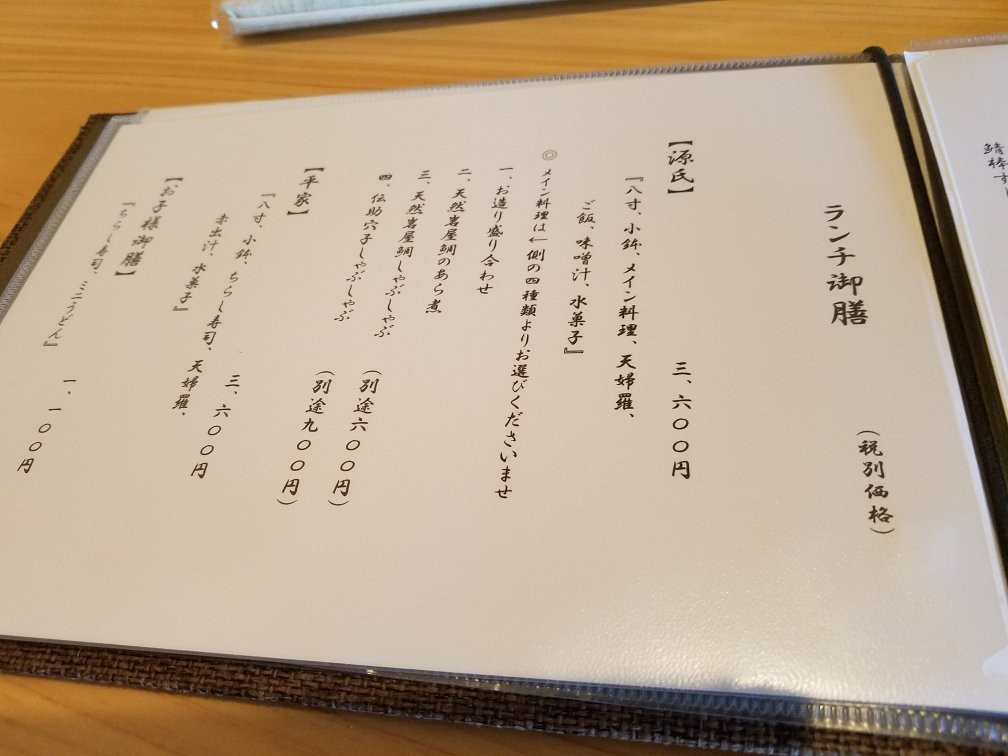 ランチ御膳
（税別価格）
【源氏】
三、六〇〇円
『八寸、小鉢、メイン料理、天婦羅、
ご飯、味噌汁、水菓子』
◎メイン料理は←側の四種類よりお選びくださいませ
一、お造り盛り合わせ
二、天然岩屋鯛のあら煮
三、天然岩屋鯛しゃぶしゃぶ
（別途六〇〇円）
四、伝助穴子しゃぶしゃぶ
（別途九〇〇円）
【平家】
三、六〇〇円
『八寸、小鉢、ちらし寿司、天婦羅、
赤出汁、水菓子』
【お子様御膳】
一、一〇〇円
『ちらし寿司、ミニうどん』
鯖棒す